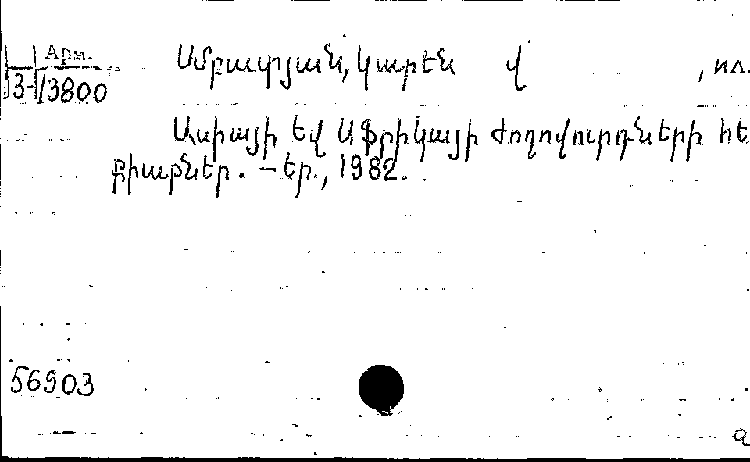 Арм.
3-13800
Սմբատյան, Կարեն Վ , ил.
Ասիայի եվ Աֆրիկայի ժողովուրդների հե
քիաթներ. – Եր., 1982.
56903